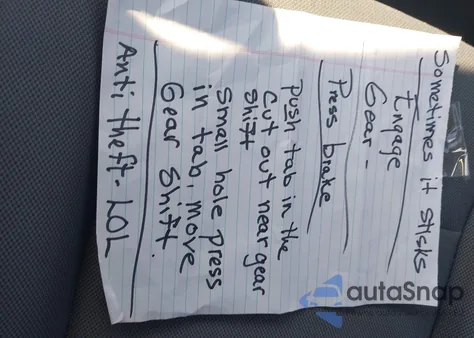 Sometimes it stisks
Engage
Gear -
Press brake
Push tab in the
Cut out near gear
Shift
Small hole press
in tab, move
Gear Shift.
Anti theft - LOL
autoSnap